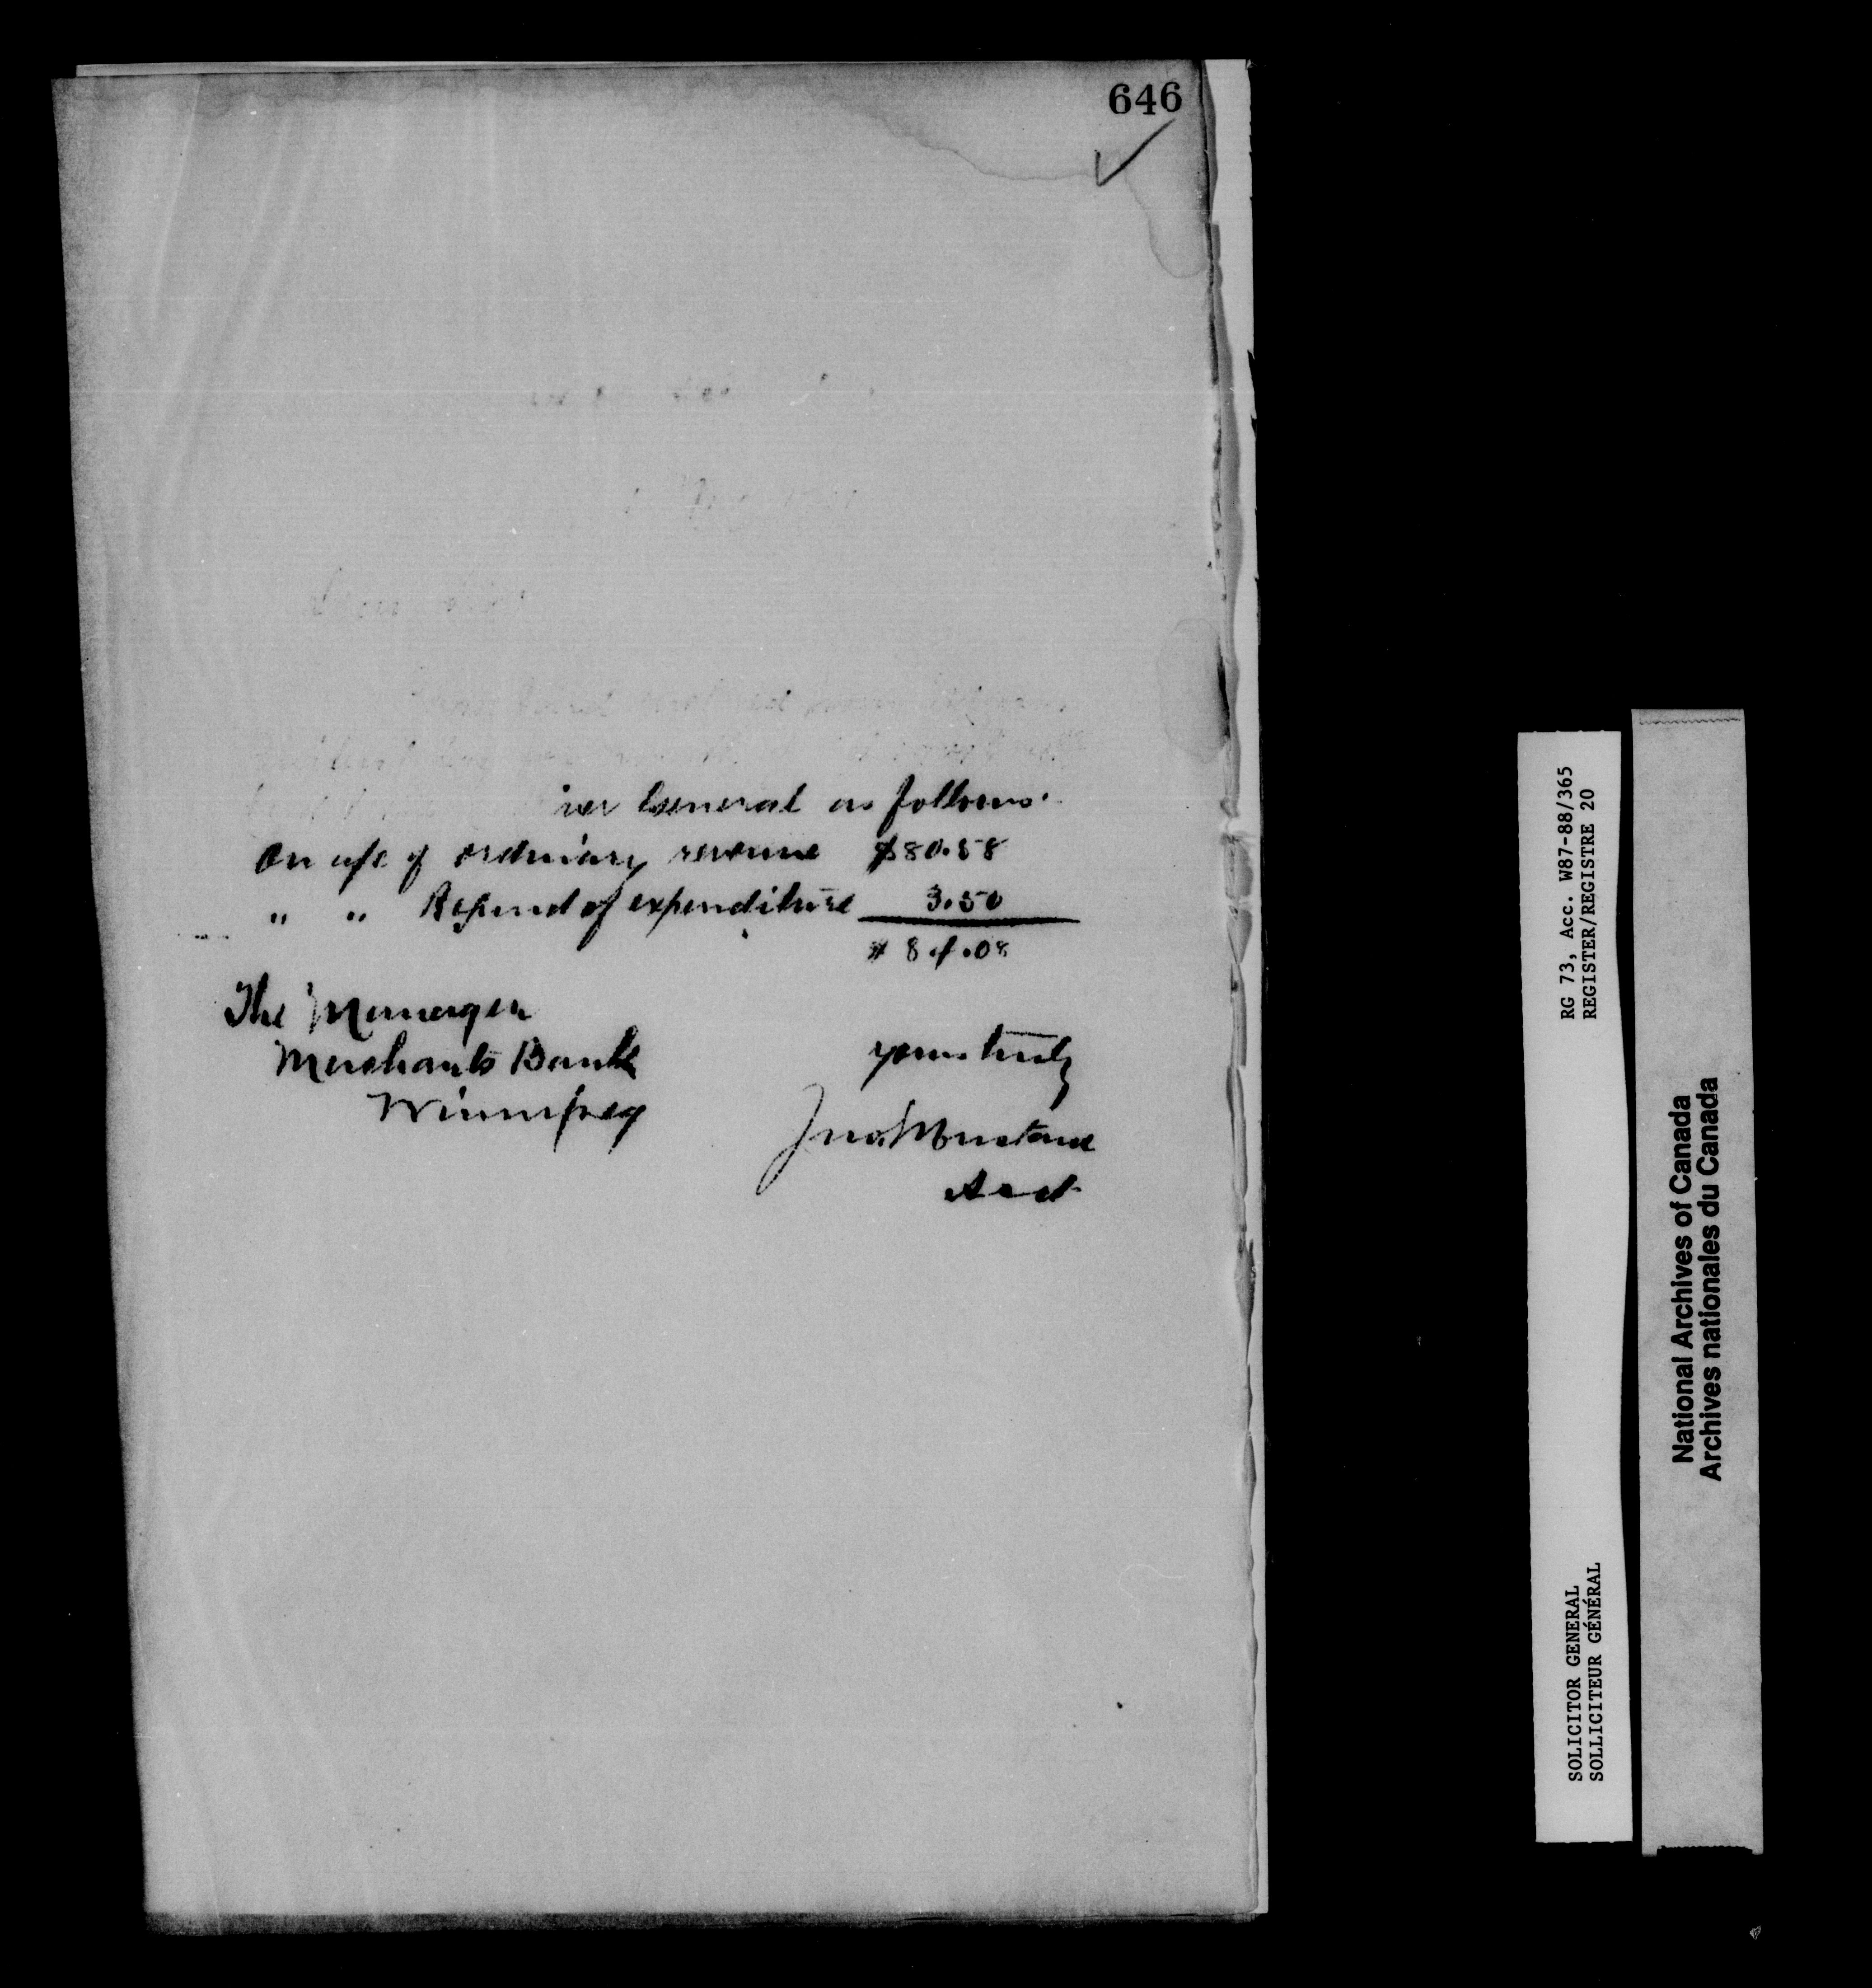 646
iver General as follows:
On a/c of ordinary revenue $80.58
" " Refund of expenditure 3.50
$84.08
The Manager
Merchants Bank
Winnipeg
yours truly
Jno. Mustard
Acct
RG 73, Acc. W87-88/365
REGISTER/REGISTRE 20
SOLICITOR GENERAL
SOLLICITEUR GÉNÉRAL
National Archives of Canada
Archives nationales du Canada